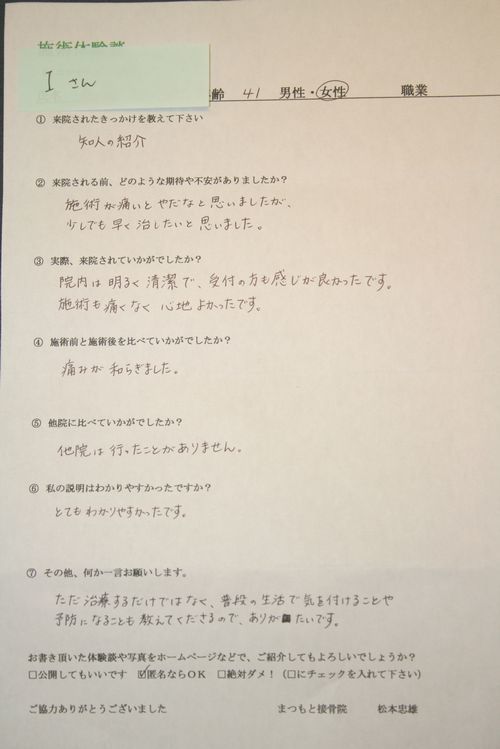 施術体験談
I さん
齢 41 男性・女性 職業
① 来院されたきっかけを教えて下さい
知人の紹介
② 来院される前、どのような期待や不安がありましたか？
施術が痛いとやだなと思いましたが、
少しでも早く治したいと思いました。
③ 実際、来院されていかがでしたか？
院内は明るく清潔で、受付の方も感じが良かったです。
施術も痛くなく心地よかったです。
④ 施術前と施術後を比べていかがでしたか？
痛みが和らぎました。
⑤ 他院に比べていかがでしたか？
他院は行ったことがありません。
⑥ 私の説明はわかりやすかったですか？
とてもわかりやすかったです。
⑦ その他、何か一言お願いします。
ただ治療するだけではなく、普段の生活で気を付けることや
予防になることも教えてくださるので、ありがたいです。
お書き頂いた体験談や写真をホームページなどで、ご紹介してもよろしいでしょうか？
□公開してもいいです ☑匿名ならOK □絶対ダメ！（□にチェックを入れて下さい）
ご協力ありがとうございました まつもと接骨院 松本忠雄